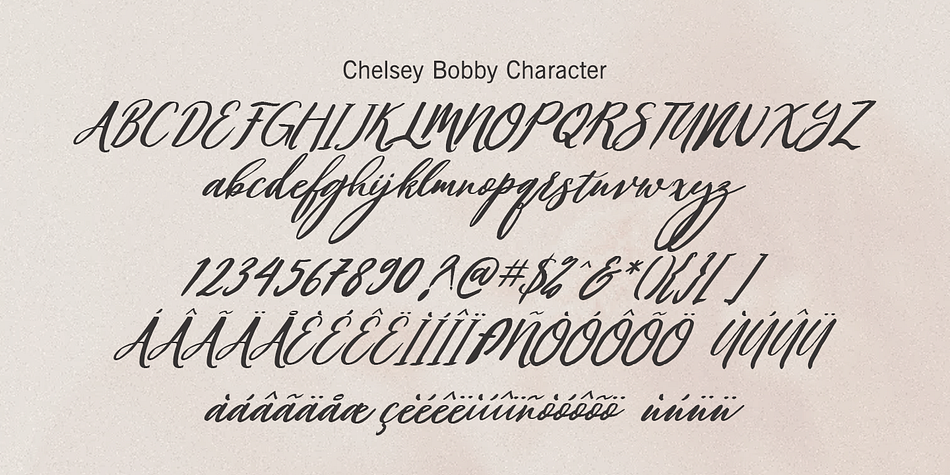 Chelsey Bobby Character
ABCDEFGHIJKLMNOPQRSTUVWXYZ
abcdefghijklmnopqrstuvwxyz
1234567890?!@#$%^&*(){}[]
ÁÂÃÄÅÈÉÊËÌÍÎÏÑÒÓÔÕÖ ÙÚÛÜ
àáâãäåæ çèéêëìíîïñòóôõö ùúûü